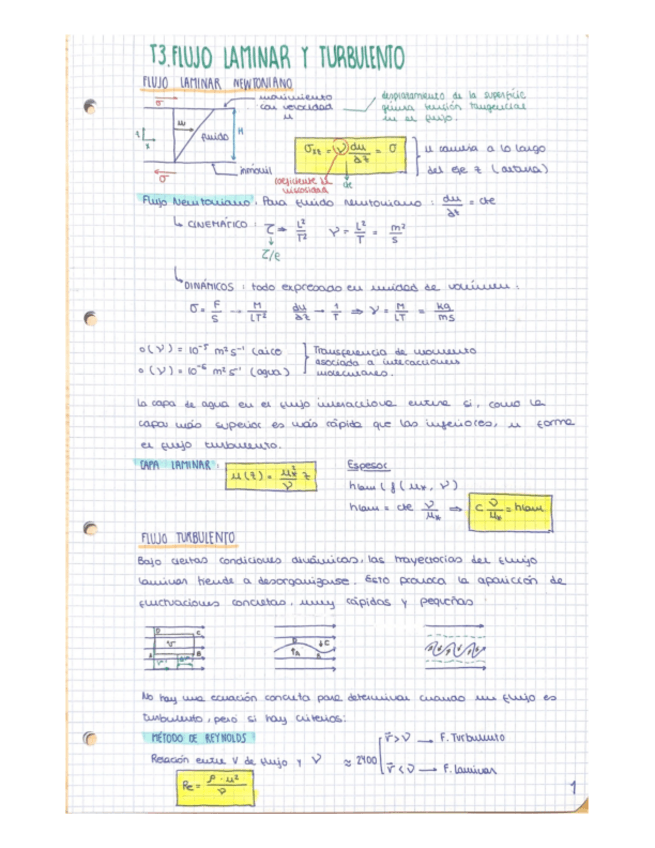 T3. FLUJO LAMINAR Y TURBULENTO
FLUJO LAMINAR NEWTONIANO
σ
movimiento con velocidad u
desplazamiento de la superficie genera tensión tangencial en el flujo.
u
fluido
H
z
s
inmóvil
σ
σsz = (ν) du/dz = σ
coeficiente de viscosidad
cte
u cambia a lo largo
del eje z (altura)
Flujo Newtoniano. Para fluido newtoniano: du/dz = cte
↳ CINEMÁTICO: τ → L²/T² ν = L²/T = m²/s
↓
τ/ρ
↳ DINÁMICOS: todo expresado en unidad de volumen:
σ = F/S → M/LT² du/dz → 1/T ⇒ ν = M/LT = kg/ms
o(ν) = 10⁻⁵ m²s⁻¹ (aire)
o(ν) = 10⁻⁶ m²s⁻¹ (agua)
Transferencia de momento
asociada a interacciones
moleculares.
la capa de agua en el flujo interacciona entre sí, como la
capa más superior es más rápida que las inferiores, se forma
el flujo turbulento.
CAPA LAMINAR:
u(z) = u*²/ν z
Espesor
hlam (f(u*, ν)
hlam = cte ν/u* ⇒ C ν/u* = hlam
FLUJO TURBULENTO
Bajo ciertas condiciones dinámicas, las trayectorias del flujo
laminar tiende a desorganizarse. Esto provoca la aparición de
fluctuaciones concretas, muy rápidas y pequeñas
D C
V
A B
D ↓C
↑A
No hay una ecuación concreta para determinar cuando un flujo es
turbulento, pero si hay criterios:
MÉTODO DE REYNOLDS
Relación entre V de flujo y ν ≈ 2400
v̄ > ν → F. Turbulento
v̄ < ν → F. Laminar
Re = ρ · u²/ν
1